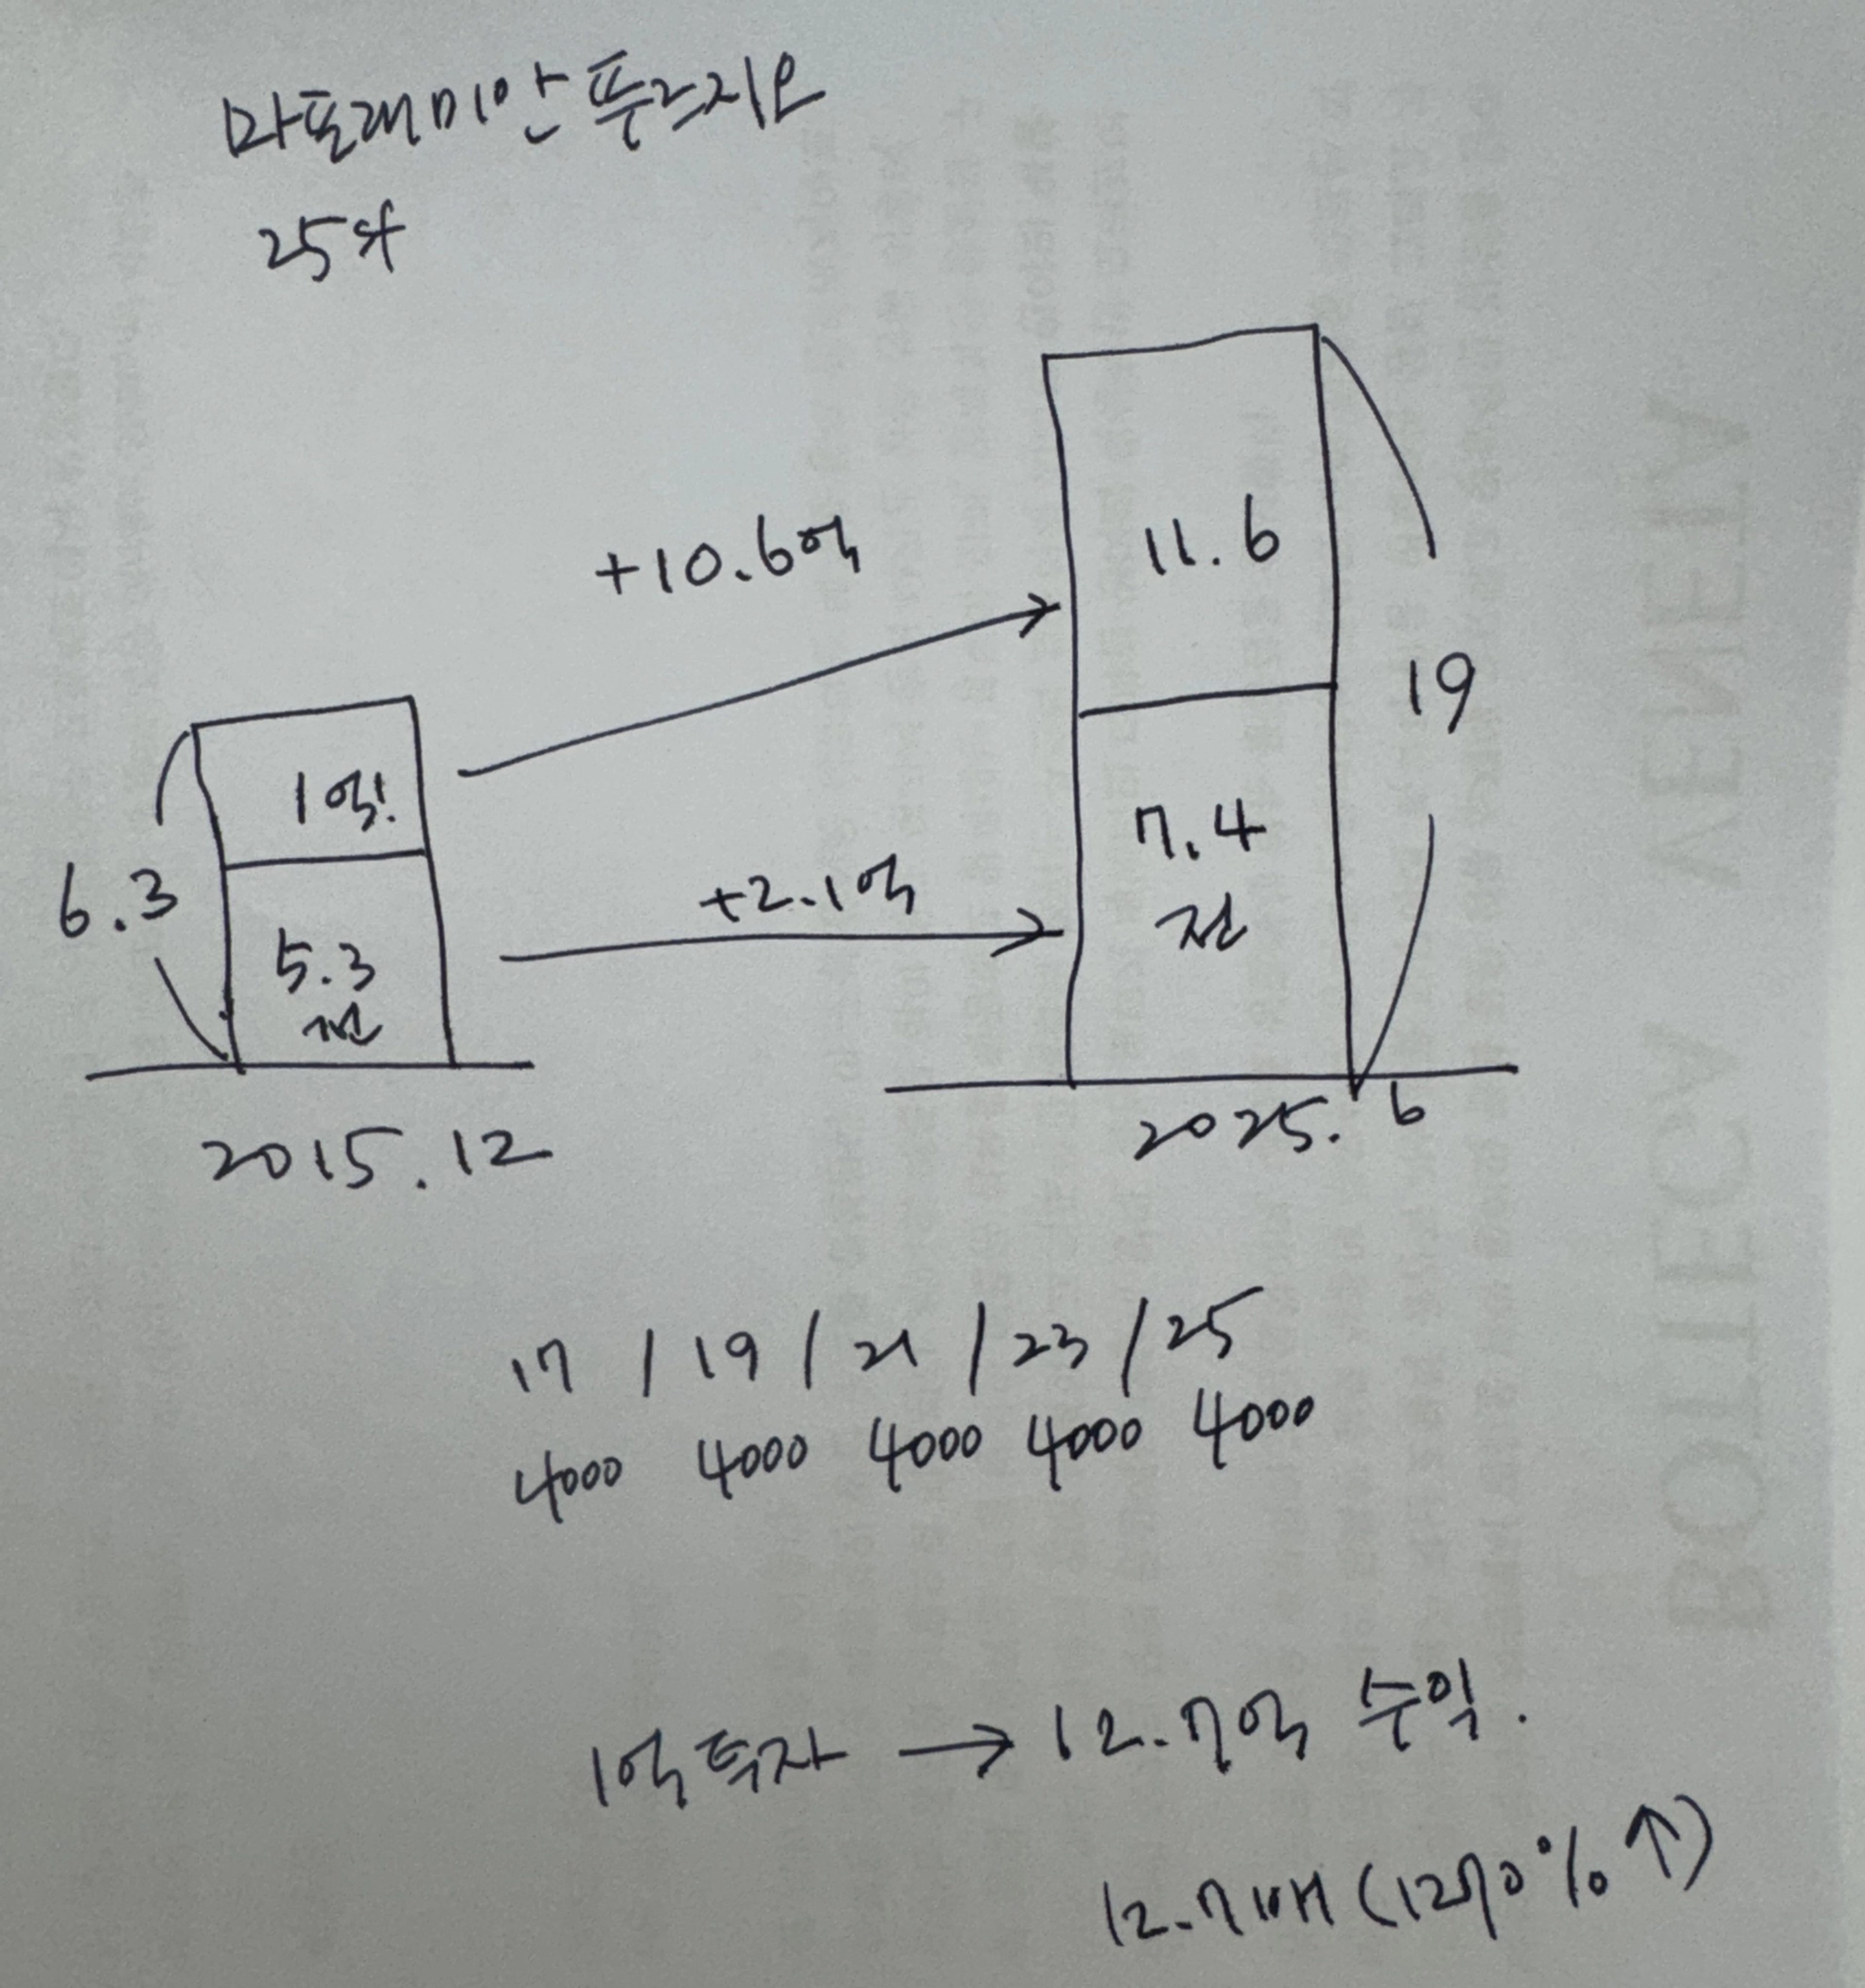 마포래미안푸르지오
25평
+10.6억
11.6
19
1억!
6.3
+2.1억
7.4
전
5.3
전
2015.12
2025.6
17 / 19 / 21 / 23 / 25
4000 4000 4000 4000 4000
1억 투자 → 12.7억 수익.
12.7배 (1270% ↑)
BOTTEGA VENETA